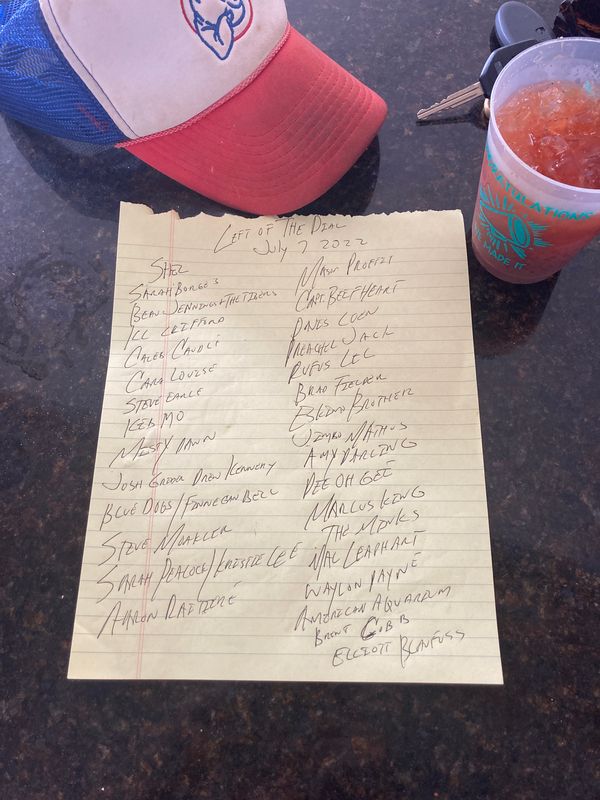 LEFT OF THE DIAL
July 7 2022
SHEL
SARAH BORGES
BEAU JENNINGS + THE TIGERS
ILL CLIFFORD
CALEB CAUDLE
CARA LOUISE
STEVE EARLE
KEB MO
MISTY DAWN
JOSH GRIDER DREW KENNEDY
BLUE DOGS / FINNEGAN BELL
STEVE MOAKLER
SARAH PEACOCK / KRISTIE LEE
AARON RAITIERE
MASH PROFIT
CAPT. BEEFHEART
DAVIS COEN
PREACHER JACK
RUFUS LEE
BRAD FIELDER
ESKIMO BROTHER
JIMBO MATHUS
AMY DARLING
DEE OH GEE
MARCUS KING
THE MINKS
MAC LEAPHART
WAYLON PAYNE
AMERICAN AQUARIUM
BRENT COBB
ELLIOTT BLAUFUSS
MADE IT